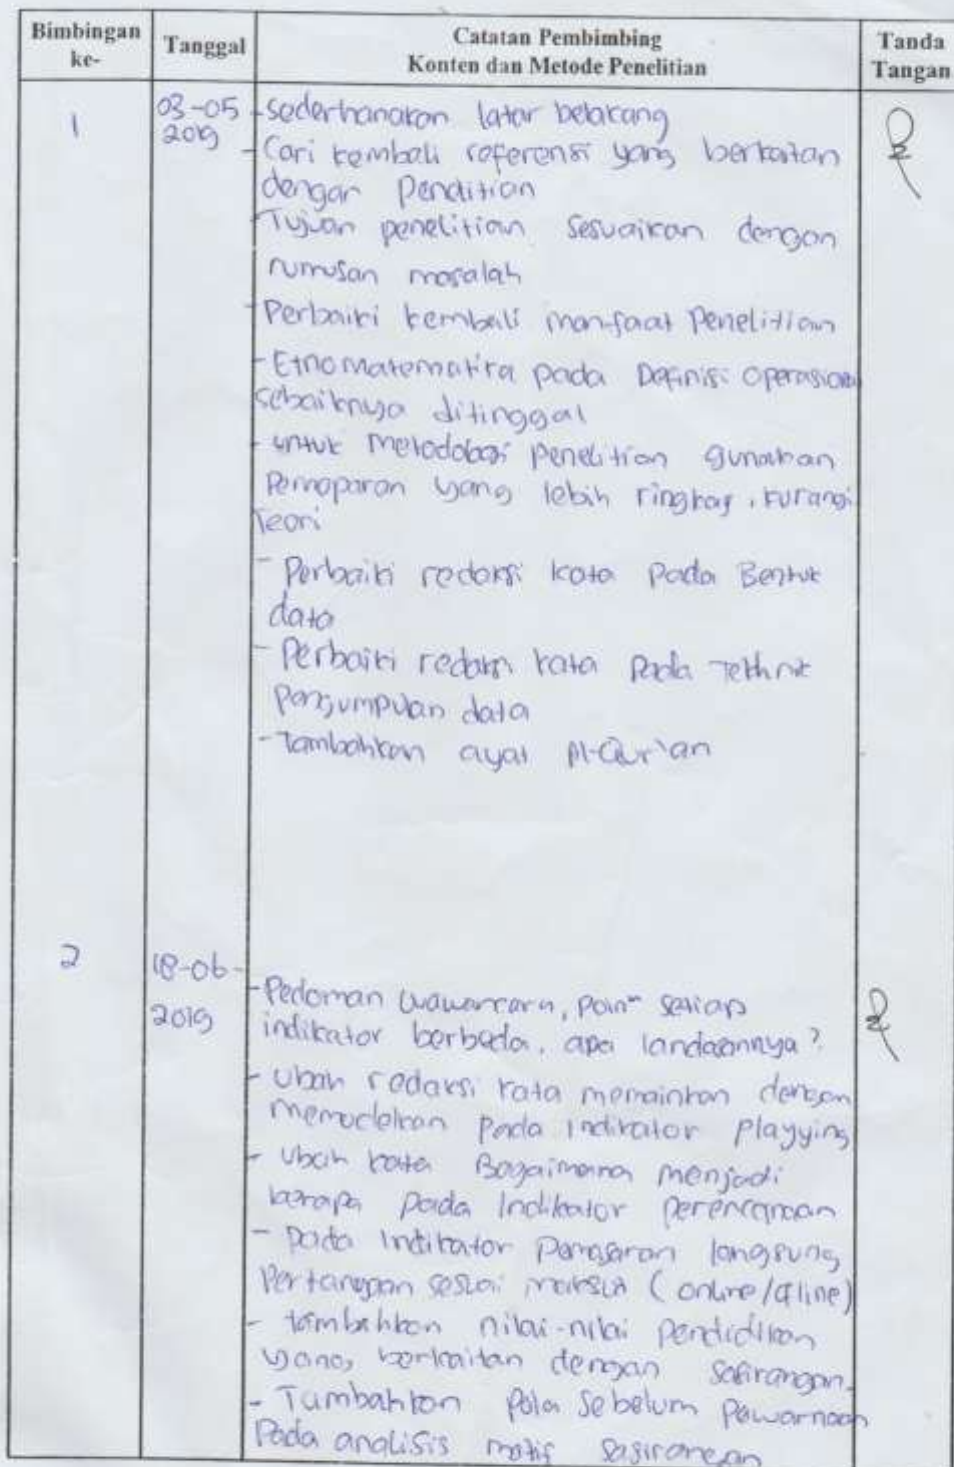 Bimbingan ke- Tanggal Catatan Pembimbing Konten dan Metode Penelitian Tanda Tangan
1 03-05 2019
- Sederhanakan latar belakang
- Cari kembali referensi yang berkaitan
dengan Penelitian
- Tujuan penelitian sesuaikan dengan
rumusan masalah
- Perbaiki kembali manfaat Penelitian
- Etnomatematika pada Definisi Operasional
sebaiknya ditinggal
- untuk metodologi penelitian gunakan
Pemaparan yang lebih ringkas, kurangi
teori
- Perbaiki redaksi kata pada Bentuk
data
- Perbaiki redaksi kata pada Tekhnik
pengumpulan data
- Tambahkan ayat Al-Qur'an
2 18-06-2019
- Pedoman wawancara, poin" setiap
indikator berbeda, apa landasannya?
- Ubah redaksi kata memainkan dengan
memodelkan pada indikator playying
- Ubah kata Bagaimana menjadi
berapa pada Indikator perencanaan
- pada indikator pemasaran langsung
Pertanyaan sesuai maksud (online/offline)
- tambahkan nilai-nilai pendidikan
yang berkaitan dengan sasirangan.
- Tambahkan Pola sebelum pewarnaan
Pada analisis motif sasirangan